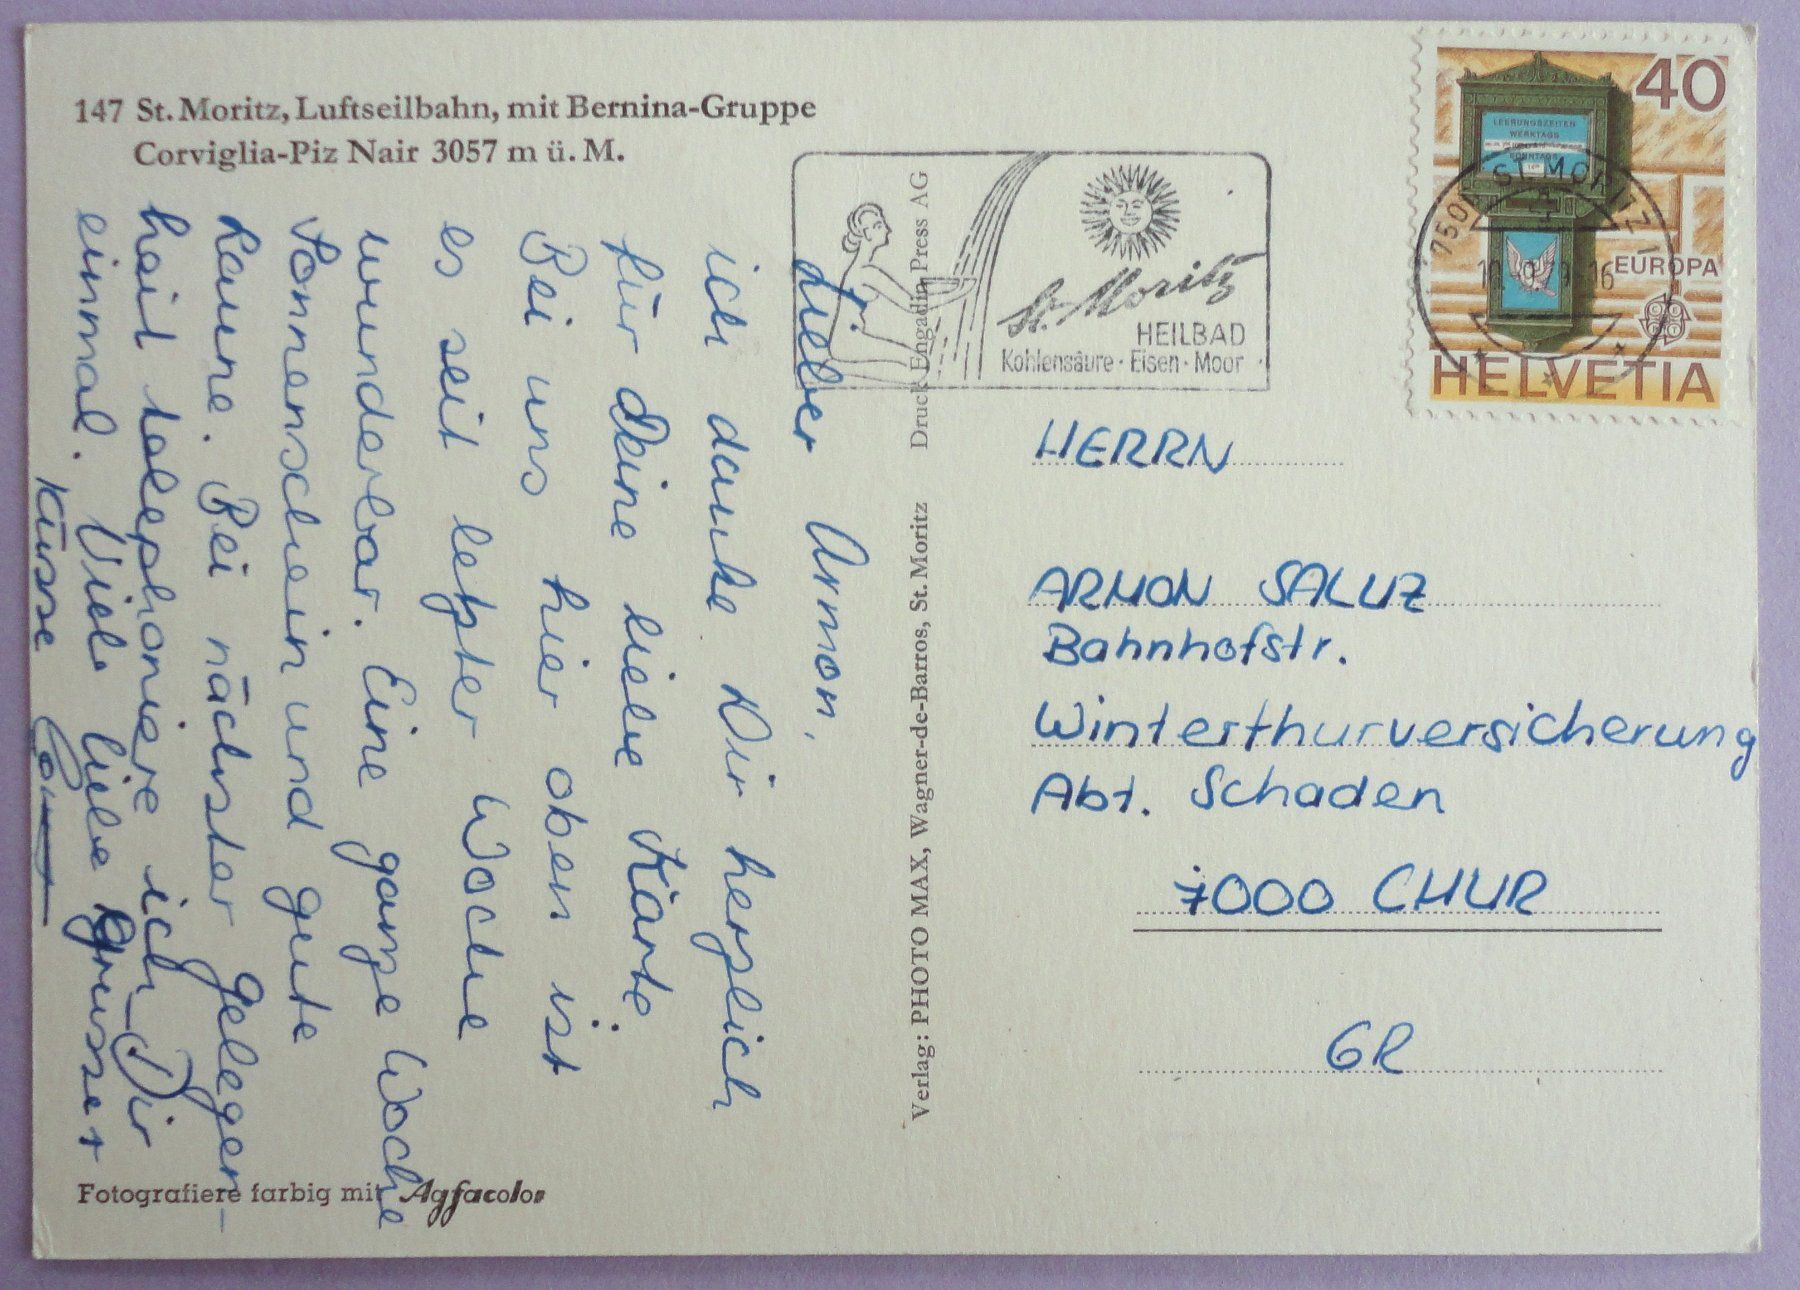 147 St. Moritz, Luftseilbahn, mit Bernina-Gruppe
Corviglia-Piz Nair 3057 m ü. M.
Lieber Armon,
ich danke Dir herzlich
für Deine liebe Karte.
Bei uns hier oben ist
es seit letzter Woche
wunderbar. Eine ganze Woche
Sonnenschein und gute
Laune. Bei nächster Gelegen-
heit telephoniere ich Dir
einmal. Viele liebe Grüsse +
Küsse
Fotografiere farbig mit Agfacolor
Verlag: PHOTO MAX, Wagner-de-Barros, St. Moritz Druck Engadin Press AG
St. Moritz
HEILBAD
Kohlensäure · Eisen · Moor
40
LEERUNGSZEITEN
WERKTAGS
SONNTAGS
7500 ST. MORITZ 1
EUROPA
HELVETIA
HERRN
ARMON SALUZ
Bahnhofstr.
Winterthurversicherung
Abt. Schaden
7000 CHUR
GR